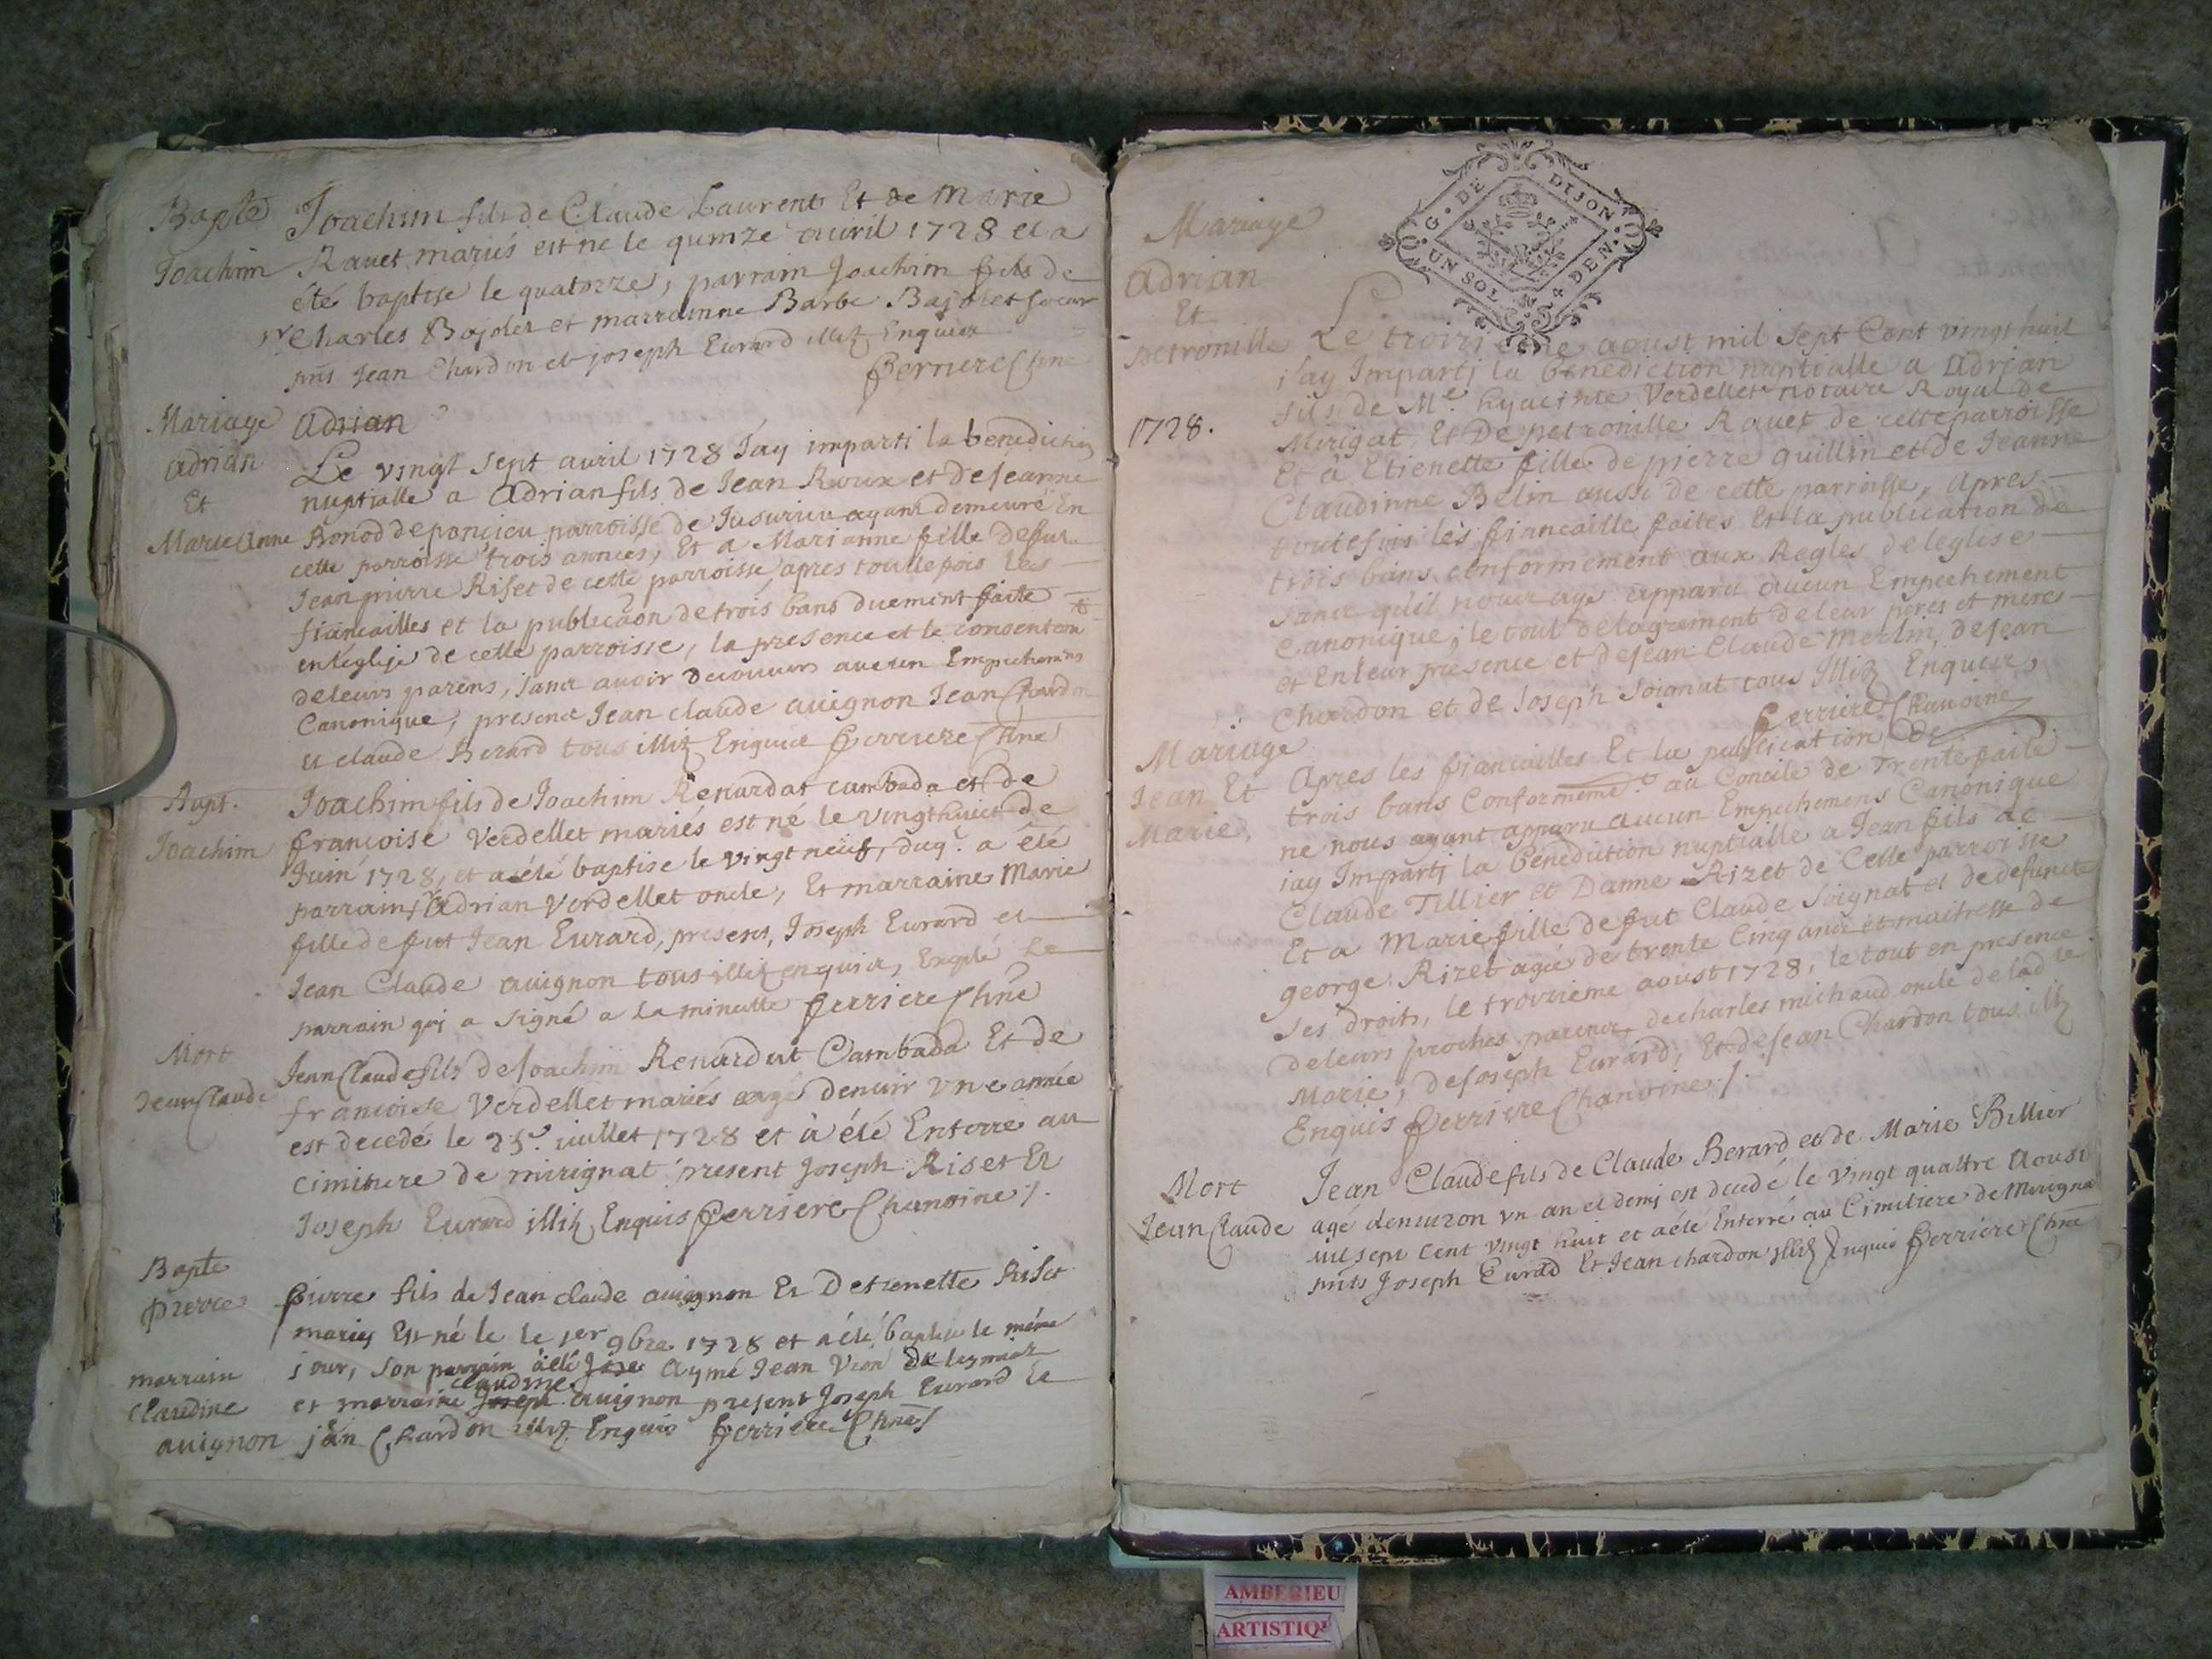 Baptē
Joachim
Joachim fils de Claude Laurent Et de Marie
Ravet mariés est ne le quinze avvril 1728 et a
été baptise le quatorze, parrain Joachim fils de
sr Charles Bajolet et marrainne Barbe Bajolet soeur
pnts Jean Chardon et joseph Evrard illitz Enquis
ferriere Chne
Mariage
adrian
Et
Marie Anne
Adrian
Le vingt sept avril 1728 Jay imparti la benediction
nuptialle a Adrian fils de Jean Roux et de Jeanne
Bonod de poncieu parroisse de Jusurieu ayant demeuré En
cette parroisse trois années, Et a Marianne fille defut
Jean pierre Riset de cette parroisse, apres touttefois les
fiancailles et la publicaôn de trois bans duement faite
en léglise de cette parroisse, la presence et le consentem
de leurs parens, sans avoir decouvers aucun Empechemens
Canonique, present Jean claude avignon Jean Chardon
et claude Berard tous illitz Enquis ferriere Chne
Bapt.
Joachim
Joachim fils de Joachim Renardat cambada et de
francoise Verdellet mariés est né le vingthuict de
Juin 1728, et a été baptise le vingt neuf, duq. a été
parrain, sr Adrian Verdellet oncle, Et marraine Marie
fille defut Jean Evrard, presens, Joseph Evrard et
Jean Claude avignon tous illitz enquis, Excplé Le
parrain qui a signé a la minutte ferriere Chne
Mort
Jean Claude
Jean Claude fils de Joachim Renardat Cambada Et de
francoise Verdellet mariés agé denvir vne année
est decedé le 25e. juillet 1728 et à été Enterre au
cimitiere de mirignat present Joseph Riset Et
Joseph Evrard illitz Enquis ferriere Chanoine /.
Bapte
pierre
marrain
Claudine
avignon
pierre fils de Jean claude avignon Et Detienette Riset
maries Est né le le 1er 9bre 1728 et a été baptise le même
jour, son parrain à été Jose Aymé Jean Vion de
claudine
et marraine Joseph avignon present Joseph Evrard Et
jean Chardon illitz Enquis ferriere Chne /
G. DE DIJON
UN SOL 4 DEN.
Mariage
Adrian
Et
petronille
1728.
Le troizieme aoust mil sept Cent vingt huit
jay Imparti la benediction nuptialle a Adrian
fils de Me. hyacinte Verdellet notaire Royal de
Mirigat, Et De petronille Ravet de cette parroisse
Et à Etienette fille de pierre guillin et de Jeanne
Claudinne Belin aussi de cette parroisse, apres
toutefois les fiancaille faites Et la publication de
trois bans conformement aux Regles de leglise
sans qu'il nous aye apparu aucun Empechement
Canonique; le tout de lagrement de leur peres et meres
et En leur presence et de Jean Claude Merlin, de Jean
Chardon et de Joseph Soignat tous Illitz Enquis,
ferriere Chanoine
Mariage
Jean Et
Marie,
Apres les fiancailles Et la publication de
trois bans Conformemt. au Concile de Trente faite
ne nous ayant apparu aucun Empechemens Canonique
jay Imparti la benediction nuptialle a Jean fils de
Claude Tillier et Danne Rizet de Cette parroisse
Et a Marie fille defut Claude Soignat et de defuncte
george Rizet agée de trente Cinq ans et maitresse de
ses droits, le troizieme aoust 1728, le tout en presence
de leurs proches parens, de charles michaud oncle de lad te
Marie, de Joseph Evrard, Et de Jean Chardon tous illz
Enquis ferriere Chanoine /.
Mort
Jean Claude
Jean Claude fils de Claude Berard et de Marie Billier
agé denviron vn an et demj est decedé le vingt quattre Aoust
mil sept Cent vingt huit et a été Enterré au Cimitiere de Mirigna
pnts Joseph Evrad Et Jean chardon illitz Enquis ferriere Chne
AMBERIEU
ARTISTIQU